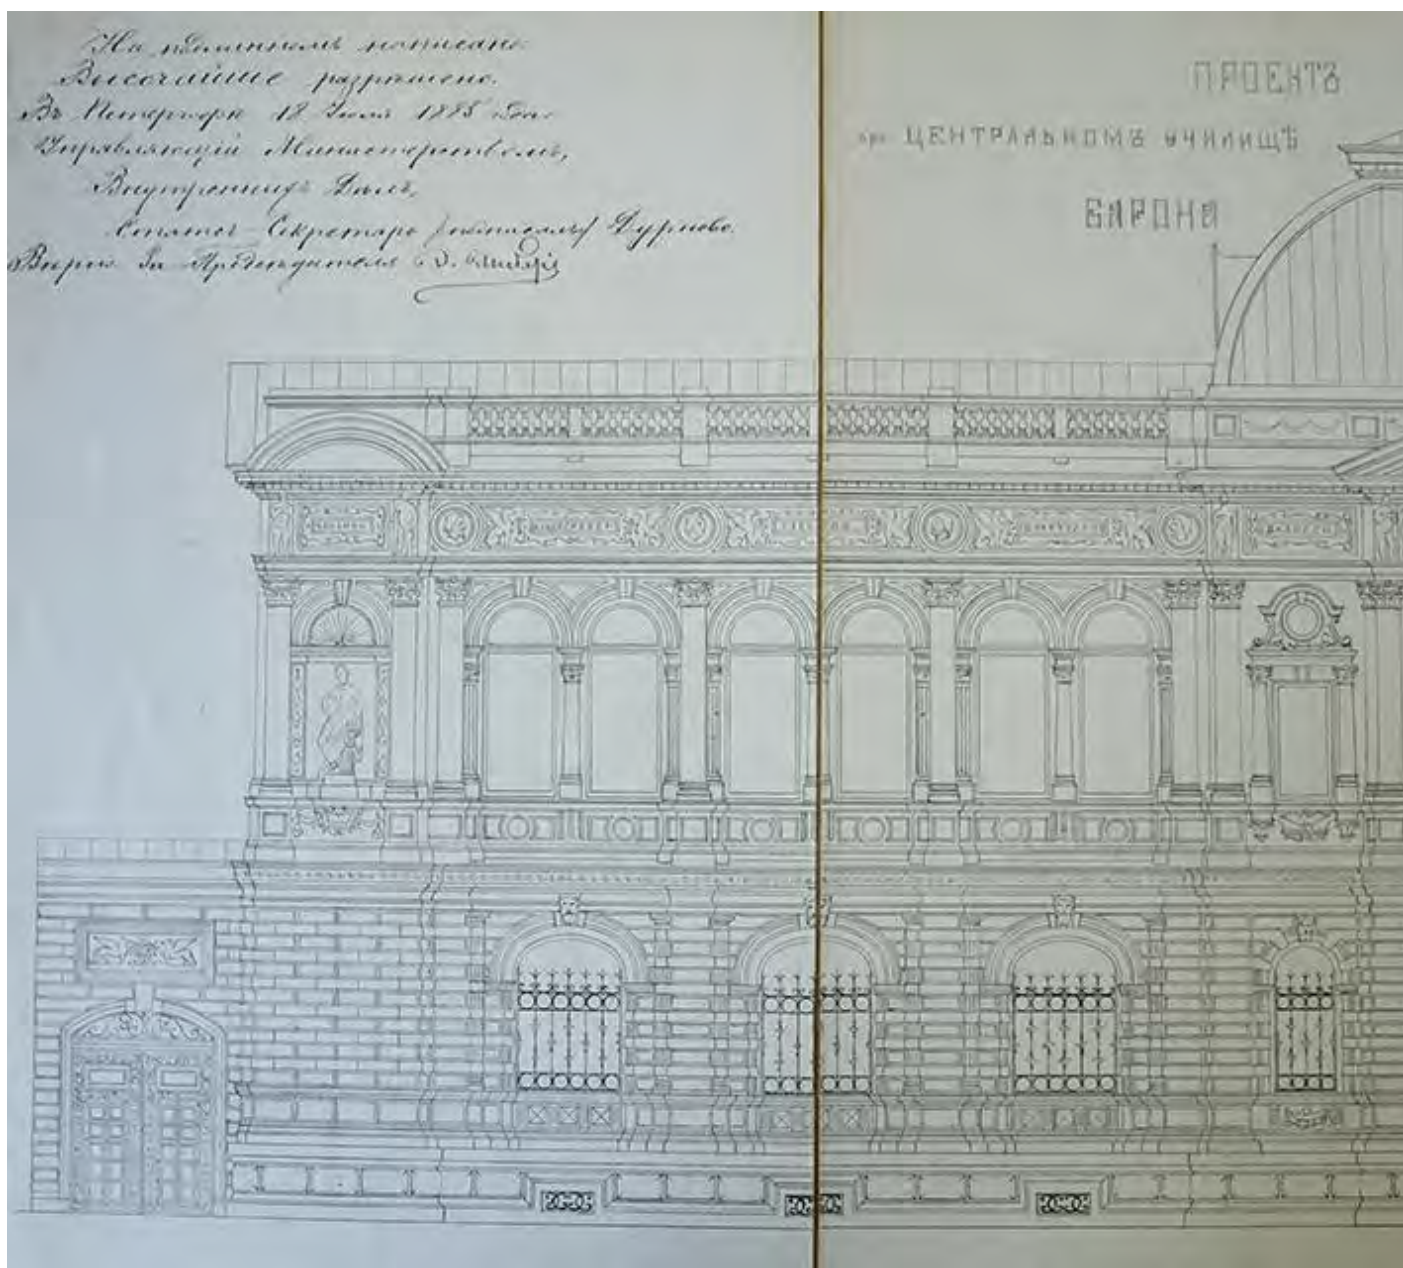 На подлинномъ написано:
Высочайше разрѣшено.
Въ Петергофѣ 18 Іюля 1885 года.
Управляющій Министерствомъ,
Внутреннихъ Дѣлъ,
Статсъ-Секретарь /подписалъ/ Дурново.
Вѣрно: За Предсѣдателя
ПРОЕКТЪ
при ЦЕНТРАЛЬНОМЪ УЧИЛИЩѢ
БАРОНА